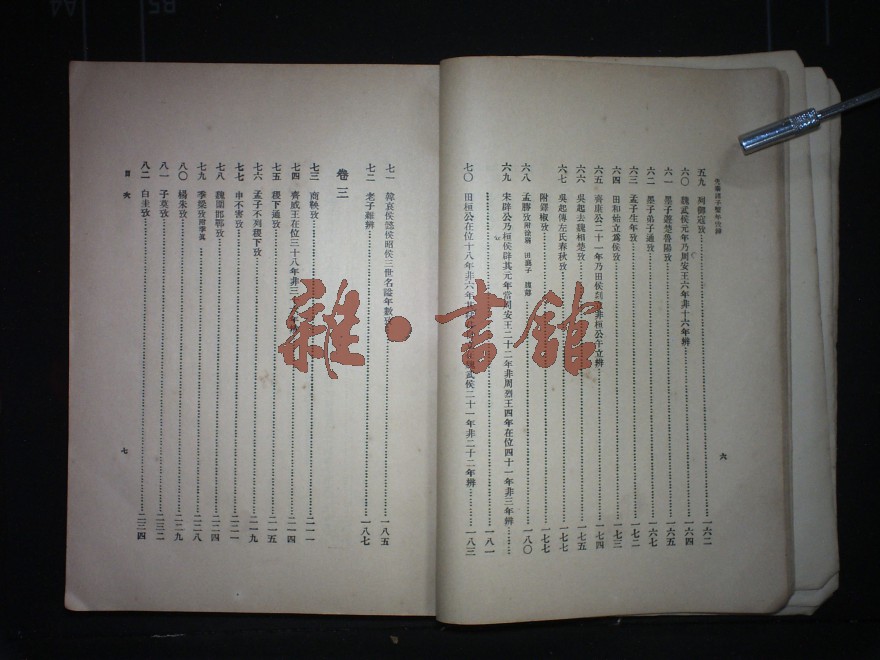 先秦諸子繫年攷辨
五九 列御寇攷 一六二
六〇 魏武侯元年乃周安王六年非十六年辨 一六四
六一 墨子遊楚魯陽攷 一六五
六二 墨子弟子通攷 一六七
六三 孟子生年攷 一七二
六四 田和始立為侯攷 一七三
六五 齊康公二十一年乃田侯剡立非桓公午立辨 一七四
六六 吳起去魏相楚攷 一七五
六七 吳起傳左氏春秋攷 一七七
附鐸椒攷 一七七
六八 孟勝攷 附徐弱 田襄子 腹䵍 一八〇
六九 宋辟公乃桓侯辟其元年當周安王二十二年非周烈王四年在位四十一年非三年辨
一八一
七〇 田桓公在位十八年非六年 武侯二十一年非二十二年辨 一八三
六
七一 韓哀侯懿侯昭侯三世名謚年數攷 一八五
七二 老子雜辨 一八七
卷三
七三 商鞅攷 二一一
七四 齊威王在位三十八年非三 二一四
七五 稷下通攷 二一五
七六 孟子不列稷下攷 二一九
七七 申不害攷 二二一
七八 魏圍邯鄲攷 二二四
七九 季梁攷 附季真 二二八
八〇 楊朱攷 二二九
八一 子莫攷 二三二
八二 白圭攷 二三四
目次
七
雜·書館